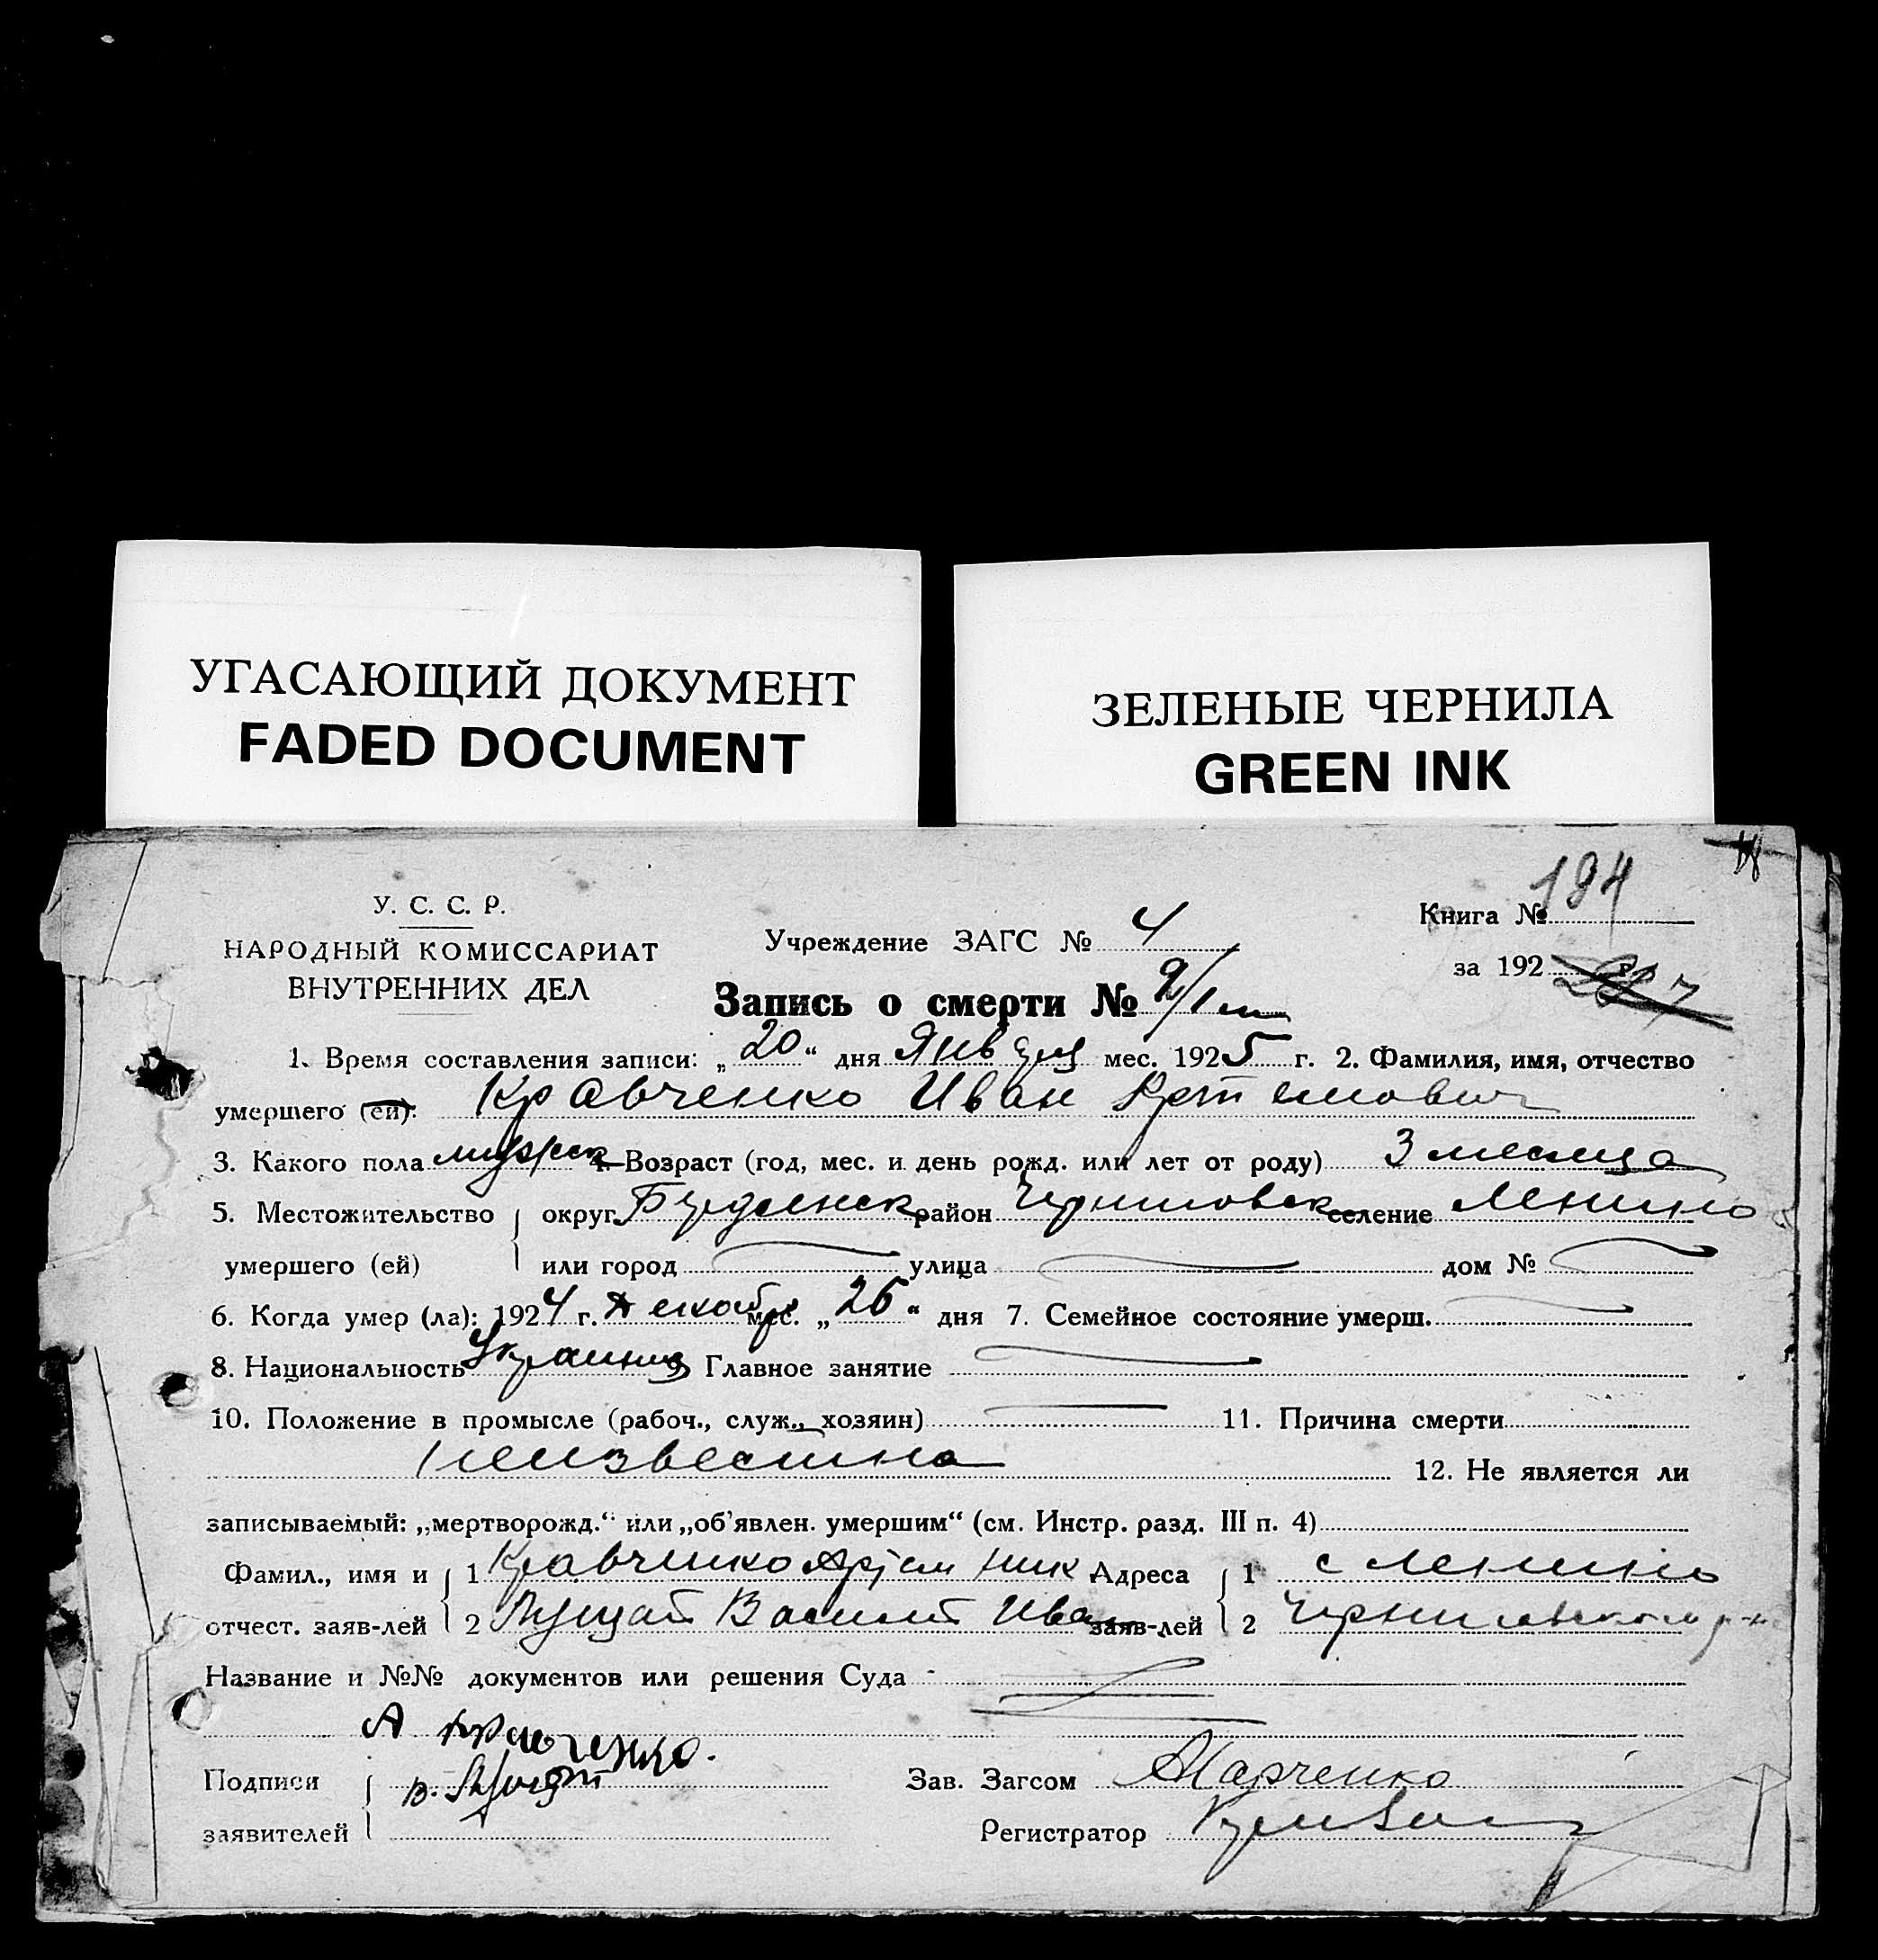 УГАСАЮЩИЙ ДОКУМЕНТ
FADED DOCUMENT
ЗЕЛЕНЫЕ ЧЕРНИЛА
GREEN INK
У. С. С. Р.
НАРОДНЫЙ КОМИССАРИАТ
ВНУТРЕННИХ ДЕЛ
Учреждение ЗАГС № 4
Книга № 194
за 192
Запись о смерти №
1. Время составления записи: „20“ дня Января мес. 1925 г. 2. Фамилия, имя, отчество
умершего (ей): Кравченко Иван Артемович
3. Какого пола мужск 4. Возраст (год, мес. и день рожд. или лет от роду) 3 месяца
5. Местожительство округ Бердянск район Черниговск селение Ленино
умершего (ей) или город улица дом №
6. Когда умер (ла): 1924 г. Декабр мес. „26“ дня 7. Семейное состояние умерш.
8. Национальность Украинец Главное занятие
10. Положение в промысле (рабоч., служ., хозяин) 11. Причина смерти
неизвестна 12. Не является ли
записываемый: „мертворожд.“ или „об’явлен. умершим“ (см. Инстр. разд. III п. 4)
Фамил., имя и 1 Кравченко Артем Ник Адреса 1 с Ленино
отчест. заяв-лей 2 Василий Иван заяв-лей 2 Черниговского р-н
Название и №№ документов или решения Суда
А Кравченко.
Подписи В. Зав. Загсом Марченко
заявителей Регистратор